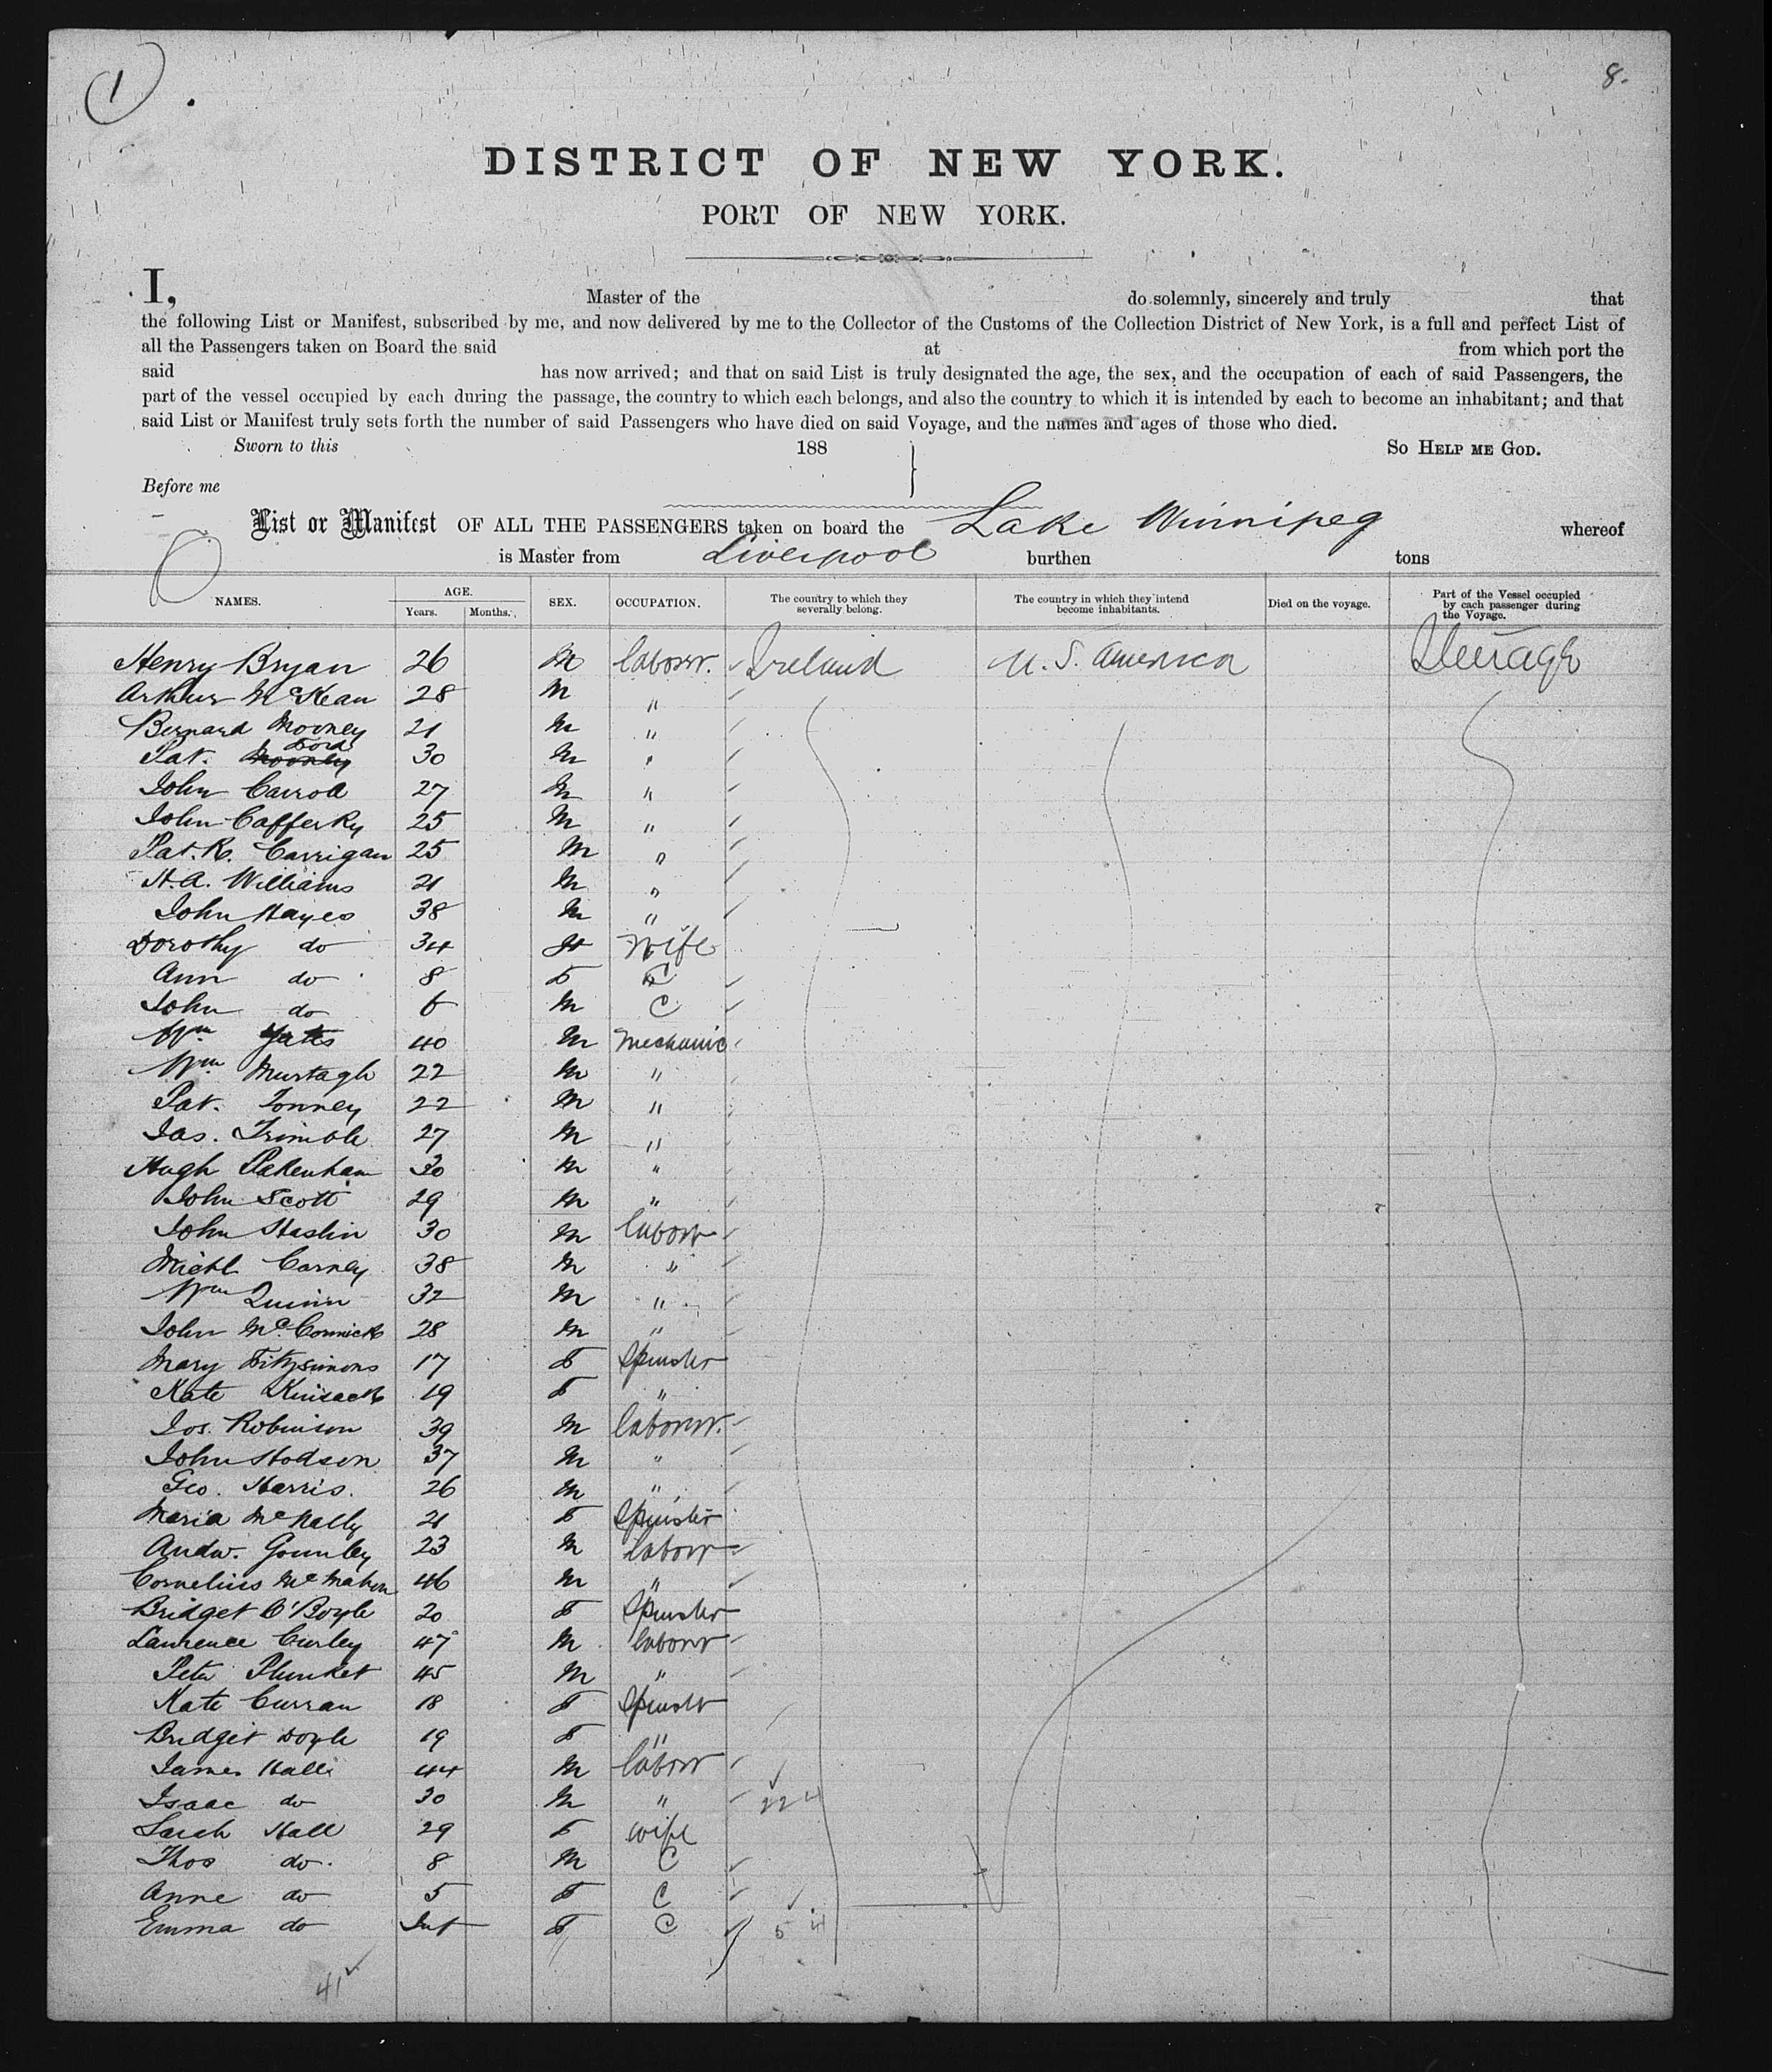 1
8.
DISTRICT OF NEW YORK.
PORT OF NEW YORK.
I, Master of the do solemnly, sincerely and truly that
the following List or Manifest, subscribed by me, and now delivered by me to the Collector of the Customs of the Collection District of New York, is a full and perfect List of
all the Passengers taken on Board the said at from which port the
said has now arrived; and that on said List is truly designated the age, the sex, and the occupation of each of said Passengers, the
part of the vessel occupied by each during the passage, the country to which each belongs, and also the country to which it is intended by each to become an inhabitant; and that
said List or Manifest truly sets forth the number of said Passengers who have died on said Voyage, and the names and ages of those who died.
Sworn to this 188 So HELP ME GOD.
Before me
List or Manifest OF ALL THE PASSENGERS taken on board the Lake Winnipeg whereof
is Master from Liverpool burthen tons
NAMES. AGE. Years. Months. SEX. OCCUPATION. The country to which they severally belong. The country in which they intend become inhabitants. Died on the voyage. Part of the Vessel occupied by each passenger during the Voyage.
Henry Bryan 26 M laborer. Ireland U. S. America Steerage
Arthur McKean 28 M "
Bernard Mooney 21 M "
Pat. Ford 30 M "
John Carroll 27 M "
John Cafferky 25 M "
Pat. K. Carrigan 25 M "
H. A. Williams 21 M "
John Hayes 38 M "
Dorothy do 34 F Wife
Ann do 8 F C
John do 6 M C
Wm Yates 40 M Mechanic
Wm Murtagh 22 M "
Pat. 22 M "
Jas. Trimble 27 M "
Hugh Pakenham 30 M "
John Scott 29 M "
John Haslin 30 M labour
Michl Carney 38 M "
Wm Quinn 32 M "
John McCormick 28 M "
Mary Fitzsimons 17 F Spinster
Kate 19 F "
Jos. Robinson 39 M laborer.
John Hodson 37 M "
Geo. Harris. 26 M "
Maria McNally 21 F Spinster
Andw. 23 M labour
Cornelius McMahon 46 M "
Bridget O'Boyle 20 F Spinster
Laurence Curley 47 M labour
Peter Plunket 45 M "
Kate Curran 18 F Spinster
Bridget Doyle 19 F "
James Hall 44 M labour
Isaac do 30 M " 22 4
Sarah Hall 29 F wife
Thos do. 8 M C
Anne do 5 F C
Emma do Inf F C 5 4
41